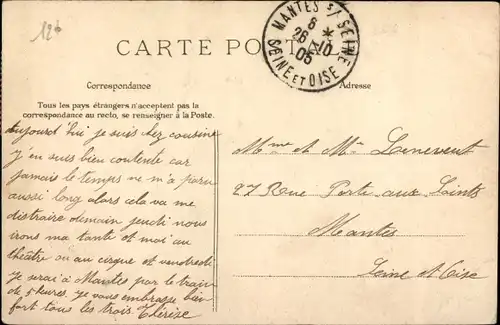 12
MANTES s/ SEINE
6 *
26 -10
05
SEINE ET OISE
CARTE POSTALE
Correspondance
Adresse
Tous les pays étrangers n'acceptent pas la
correspondance au recto, se renseigner à la Poste.
aujourd'hui je suis chez cousine
j'en suis bien contente car
jamais le temps ne m'a paru
aussi long alors cela va me
distraire demain jeudi nous
irons ma tante et moi au
théâtre ou au cirque et vendredi
je serai à Mantes par le train
de 5 heures. je vous embrasse bien
fort tous les trois Thérèse
Mme et Mr Lenevent
27 Rue Porte aux Saints
Mantes
Seine et Oise